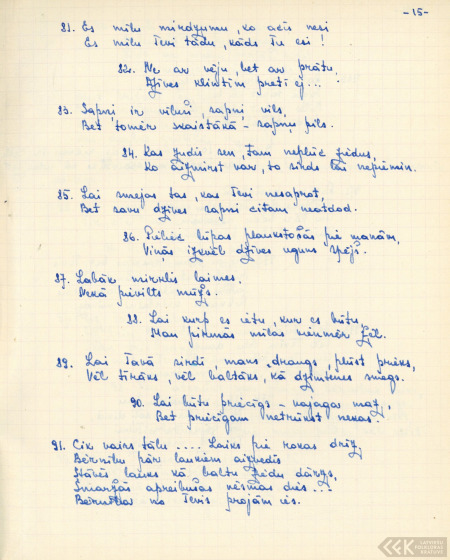 -15-
81. Es mīlu mirdzumu, ko acīs nesi
Es mīlu Tevi tādu, kāds Tu esi!
82. Ne ar vēju, bet ar prātu,
Dzīves klintīm pretī ej...
83. Sapņi ir viluši, sapņi vils,
Bet tomēr skaistākā - sapņu pils.
84. Kas zudis sen, tam neplūc ziedus,
Ko aizmirst var, to sirds lai nepiemin.
85. Lai smejas tas, kas Tevi nesaprot,
Bet savu dzīves sapni citam neatdod.
86. Pieliec lūpas plaukstošās pie manām,
Viņās izkvēl dzīves uguns spējš.
87. Labāk mirklis laimes,
Nekā pievilts mūžs.
88. Lai kurp es ietu, kur es būtu,
Man pirmās mīlas vienmēr žēl.
89. Lai Tavā sirdī, mans draugs, plūst prieks,
Vēl tīrāks, vēl baltāks, kā dzimtenes sniegs.
90. Lai būtu priecīgs - vajaga maz,
Bet priecīgam netrūkst nekas.
91. Cik vairs tālu .... Laiks pie rokas drīz
Bērnību pār laukiem aizvedīs
Stāvēs lauks kā baltu ziedu dārzs,
Smaržās apreibušas nesmas dies...
Bērnība no Tevis projām ies.
LATVIEŠU
FOLKLORAS
KRĀTUVE